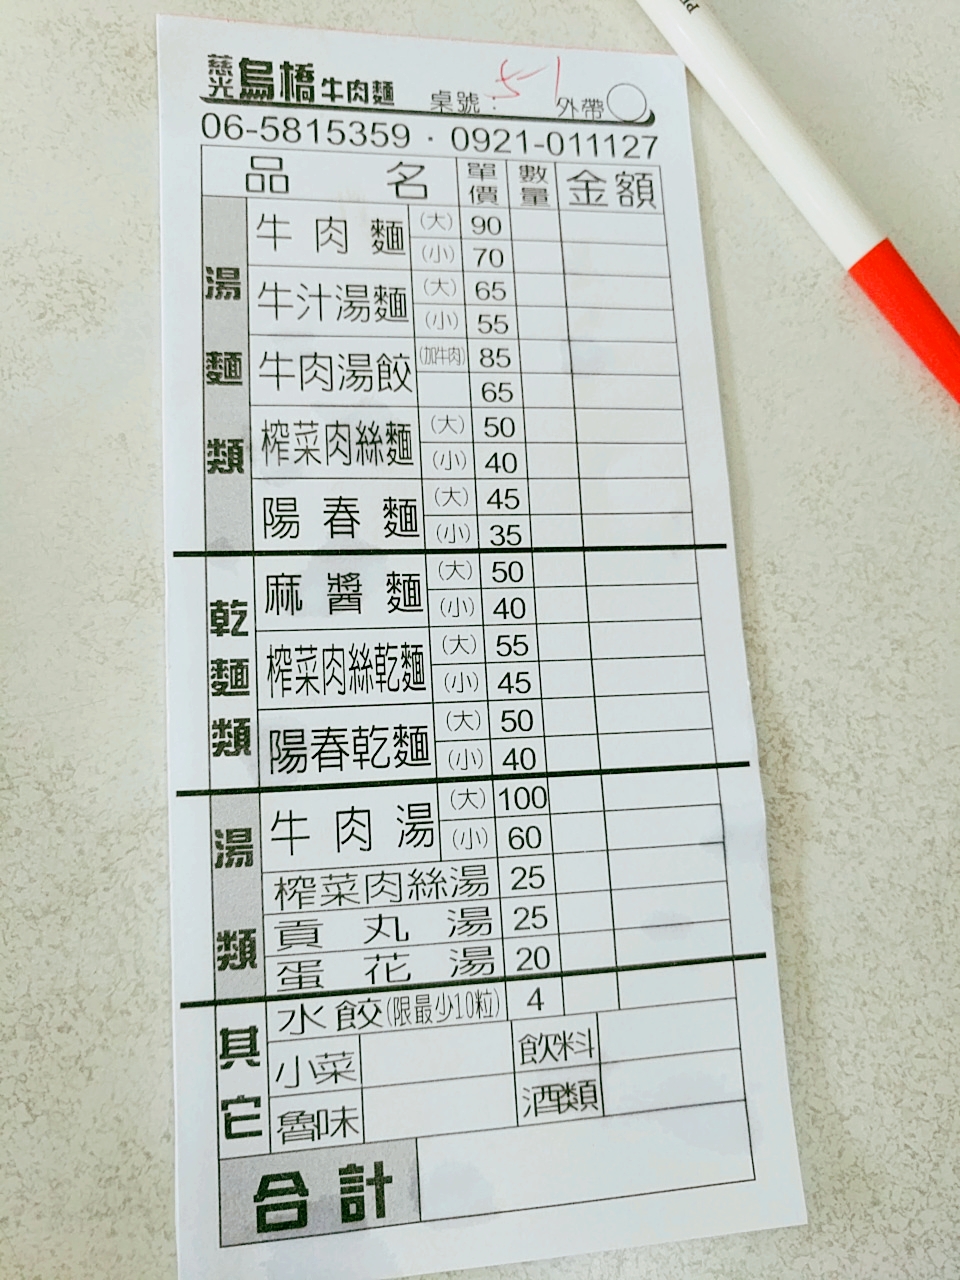 慈光烏橋牛肉麵 桌號：5-1 外帶
06-5815359 · 0921-011127
品名 單價 數量 金額
湯麵類
牛肉麵 (大) 90
(小) 70
牛汁湯麵 (大) 65
(小) 55
牛肉湯餃 (加牛肉) 85
65
榨菜肉絲麵 (大) 50
(小) 40
陽春麵 (大) 45
(小) 35
乾麵類
麻醬麵 (大) 50
(小) 40
榨菜肉絲乾麵 (大) 55
(小) 45
陽春乾麵 (大) 50
(小) 40
湯類
牛肉湯 (大) 100
(小) 60
榨菜肉絲湯 25
貢丸湯 25
蛋花湯 20
其它
水餃(限最少10粒) 4
小菜 飲料
魯味 酒類
合計